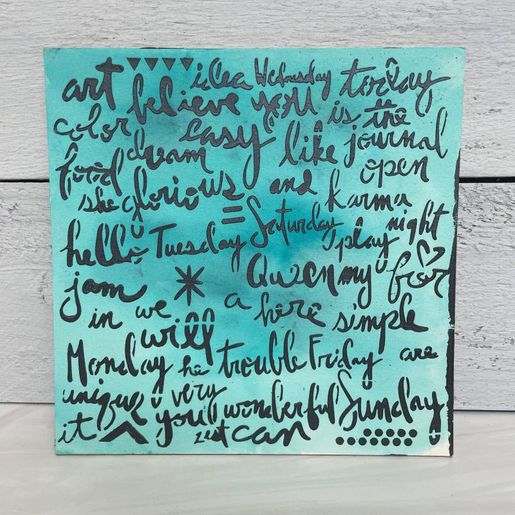 art idea Wednesday today
believe you is the
color easy like journal
food dream open
she glorious and karma
hello Tuesday Saturday play night
jam Queen my for
in we will a here simple
Monday he trouble Friday are
unique very you wonderful Sunday
it zest can